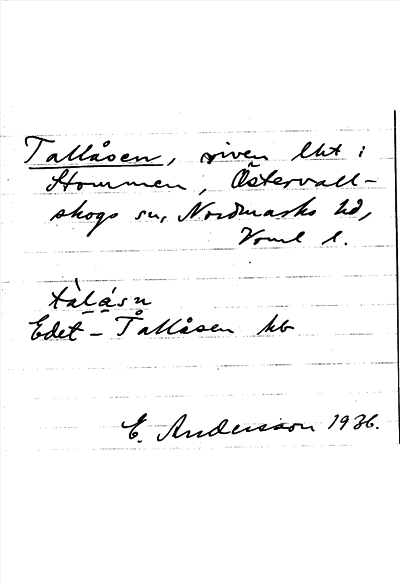 Tallåsen, riven lht i
Stommen, Östervall-
skogs sn, Nordmarks hd,
Vrml l.
tàlåsn
Edet - Tallåsen kb
E. Andersson 1936.